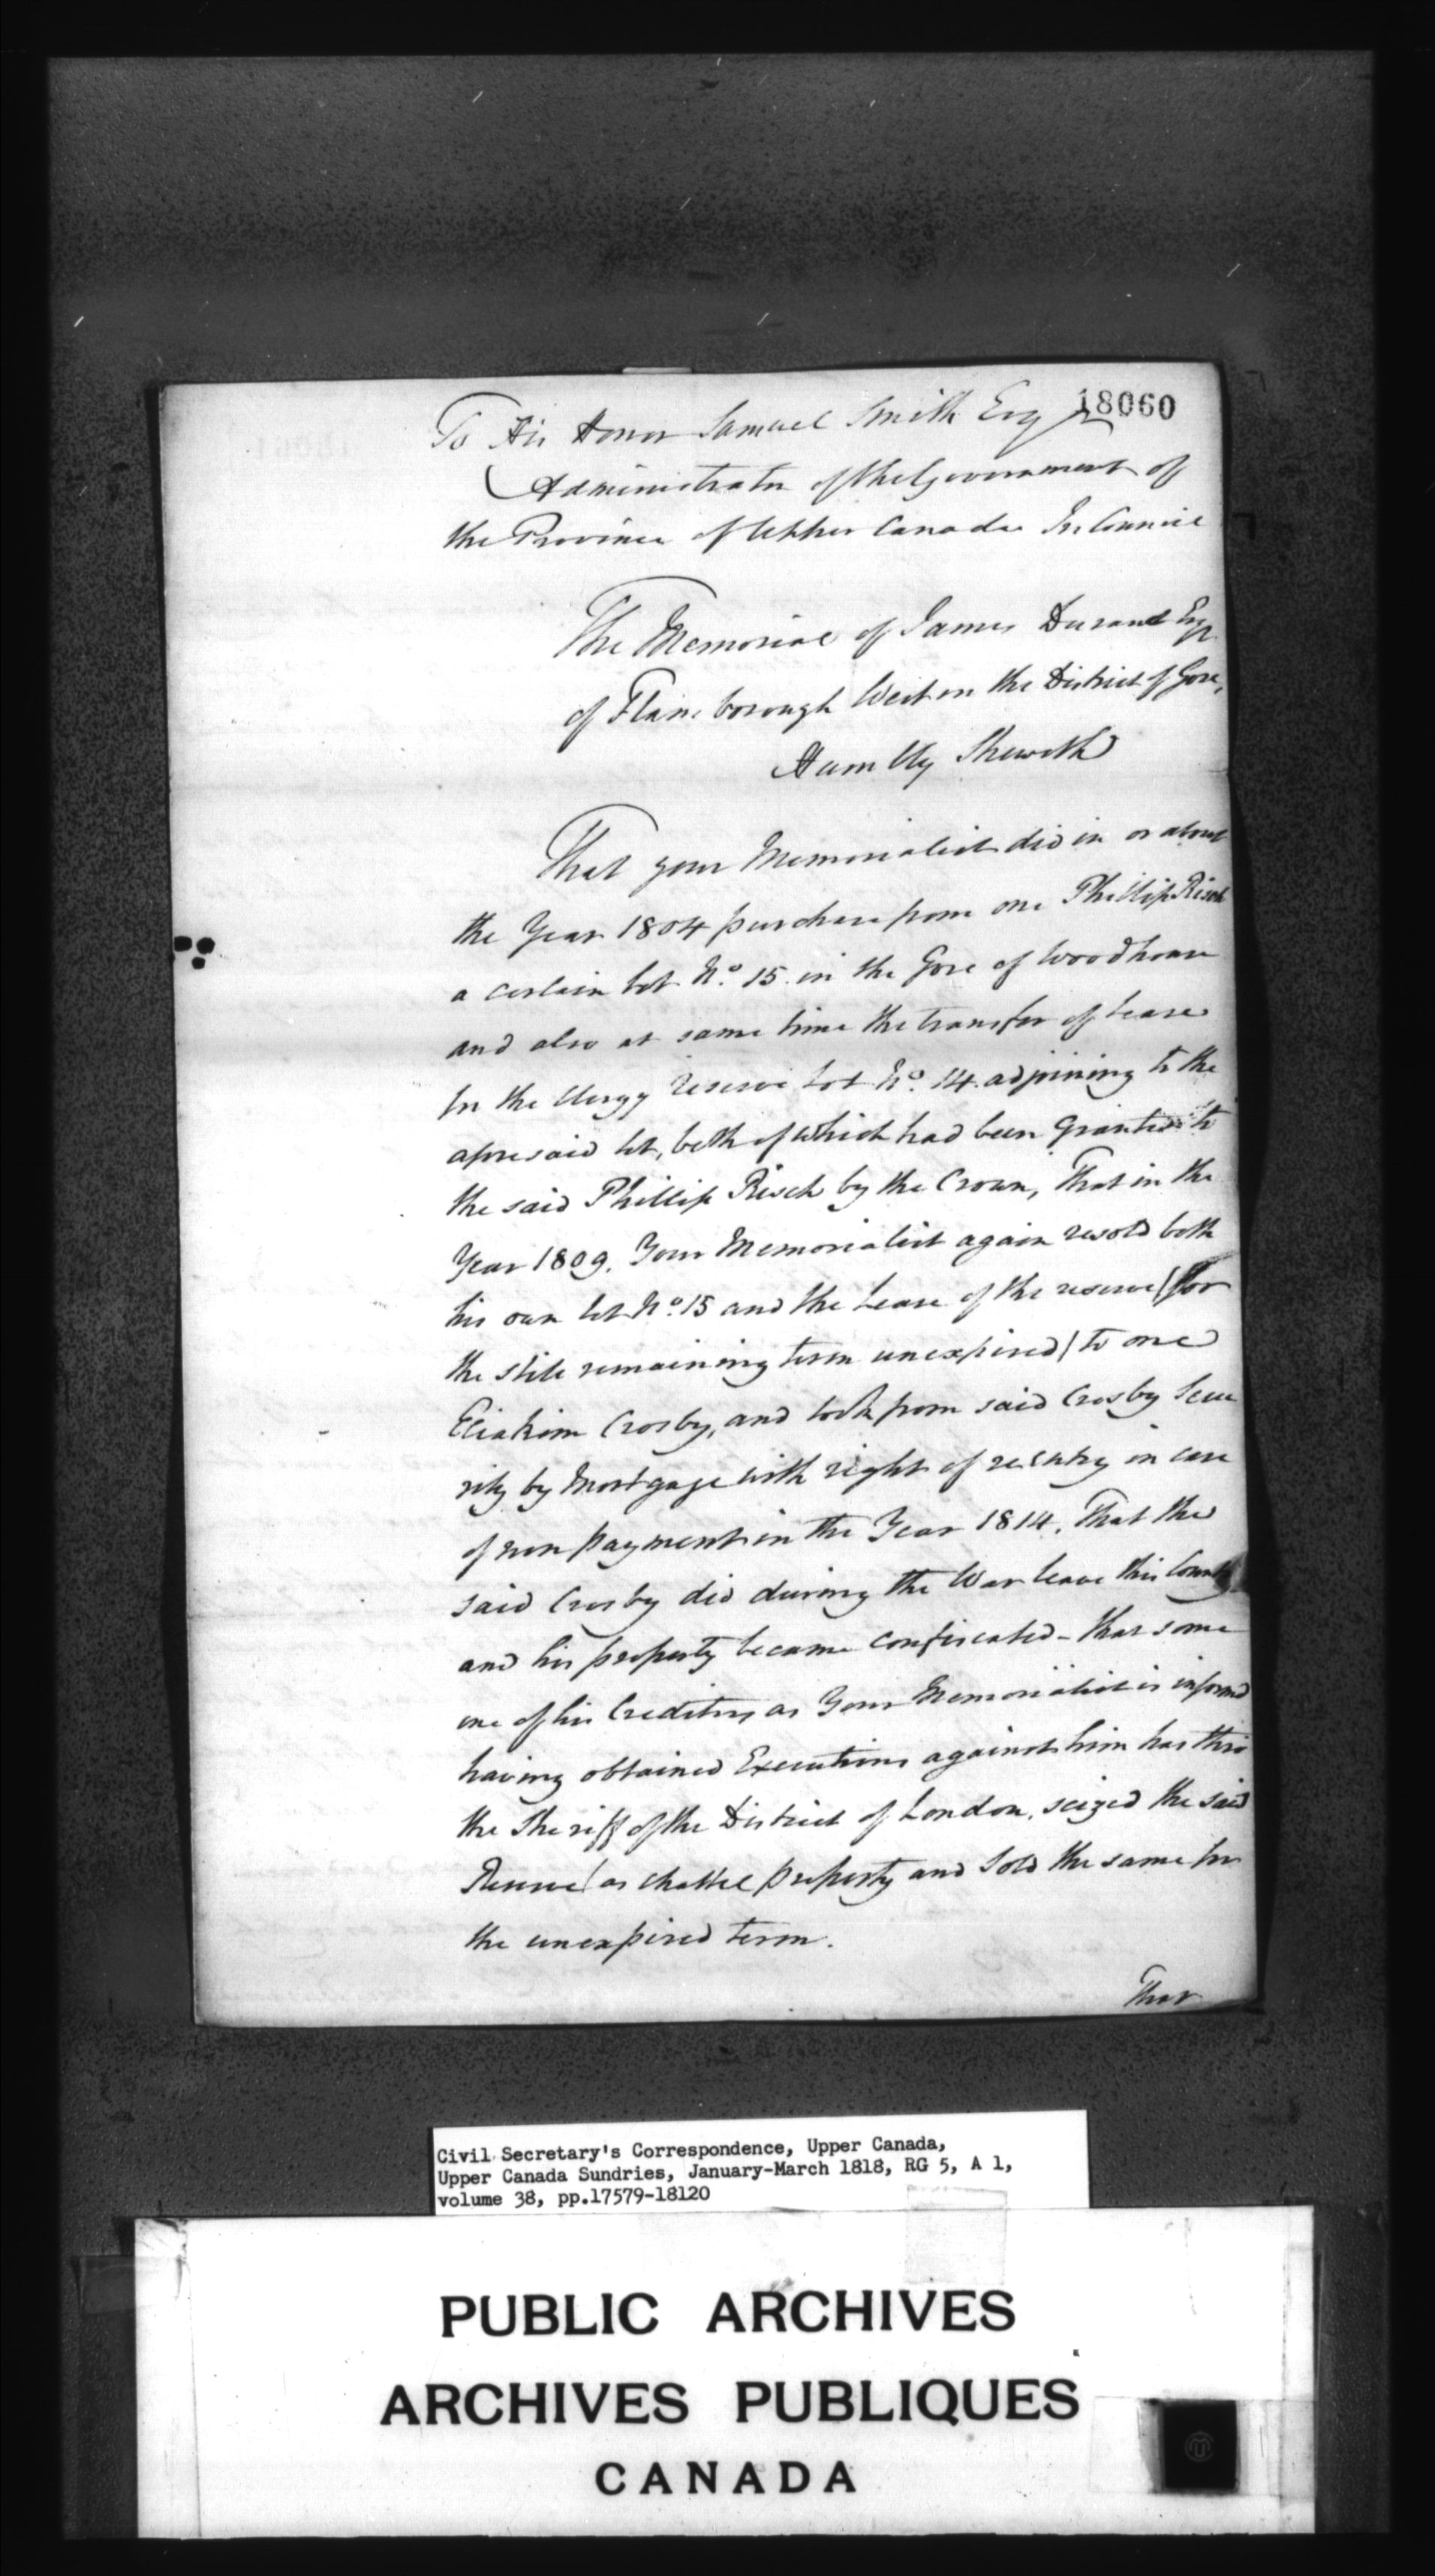 18060
To His Honor Samuel Smith Esqr
Administrator of the Government of
the Province of Upper Canada In Council
The Memorial of James Durand Esqr
of Flamborough West in the District of Gore,
Humbly Sheweth
That your Memorialist did in or about
the Year 1804 purchase from one Phillip Risch
a certain lot No. 15 in the Gore of Woodhouse
and also at same time the transfer of Lease
for the Clergy reserve Lot No. 14 adjoining to the
aforesaid lot, both of which had been granted to
the said Phillip Risch by the Crown, That in the
Year 1809. Your Memorialist again resold both
his own lot No. 15 and the Lease of the reserve (for
the still remaining term unexpired) to one
Eliakim Crosby, and took from said Crosby Secu
rity by Mortgage with right of reentry in case
of non payment in the Year 1814. That the
said Crosby did during the War leave this Country
and his property became confiscated - that some
one of his Creditors as Your Memorialist is informd
having obtained Executions against him has thro
the Sheriff of the District of London, seized the said
Reserve as chattel property and Sold the same for
the unexpired term.
That
Civil Secretary's Correspondence, Upper Canada,
Upper Canada Sundries, January-March 1818, RG 5, A 1,
volume 38, pp.17579-18120
PUBLIC ARCHIVES
ARCHIVES PUBLIQUES
CANADA